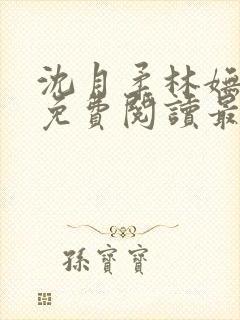 沈自柔林嫵
免費閱讀最
孫寶寶